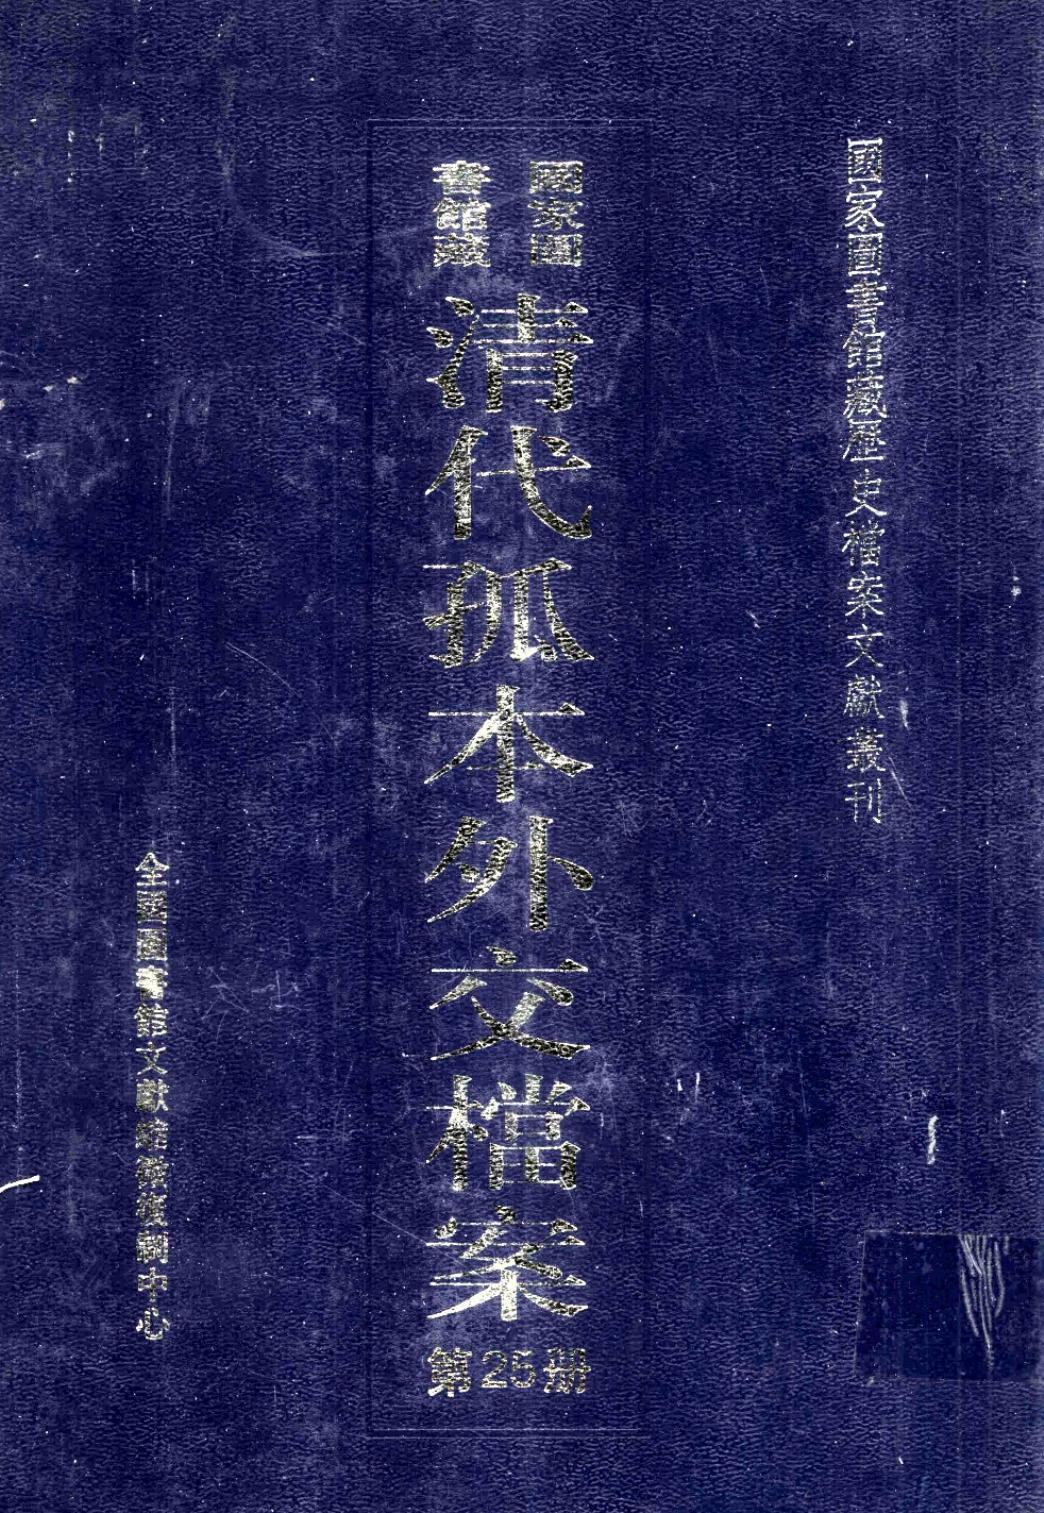 國家圖書館藏歷史檔案文獻叢刊
國家圖
書館藏
清代孤本外交檔案
第25册
全國圖書館文獻縮微復制中心